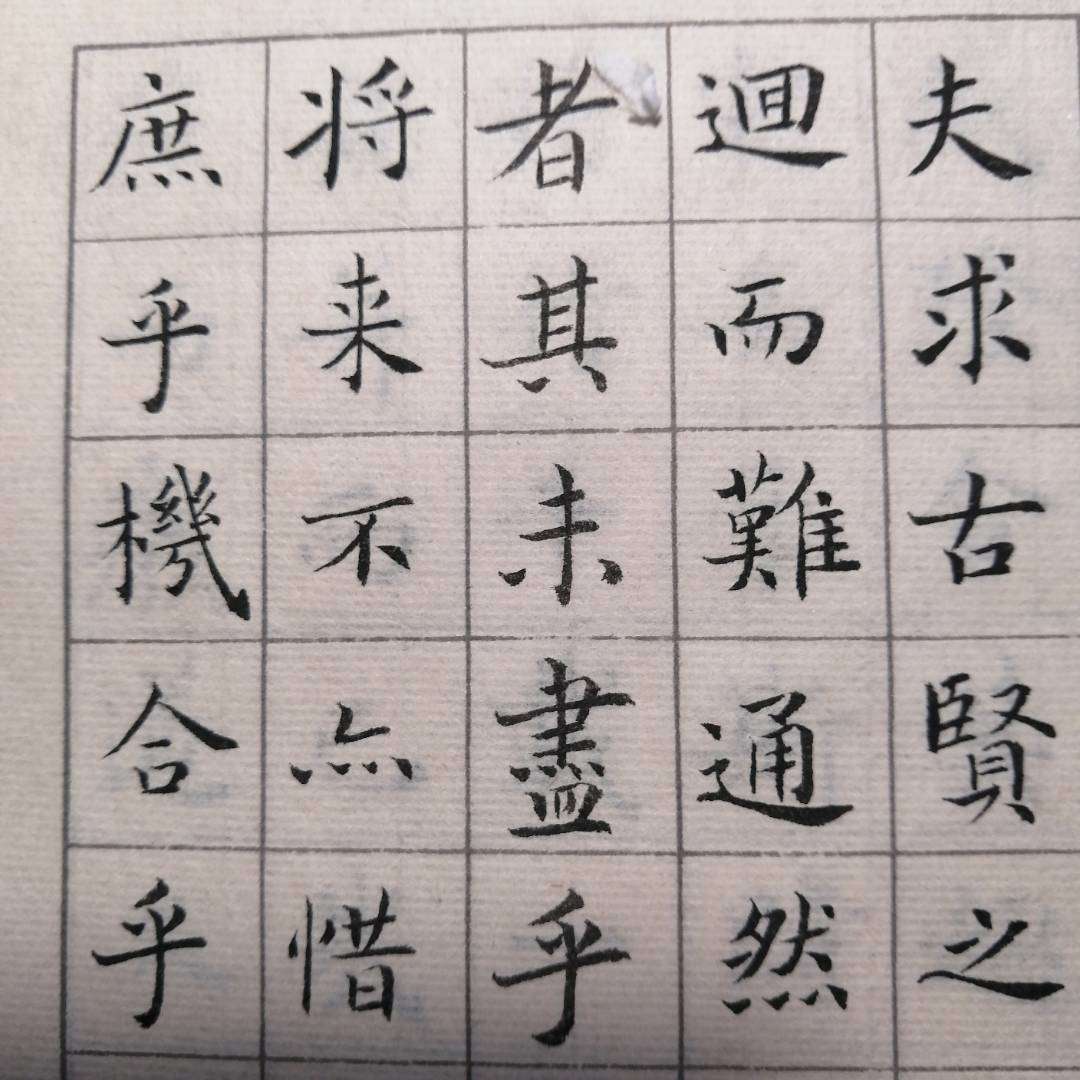 夫求古賢之
迴而難通然
者其未盡乎
将来不亦惜
庶乎機合乎